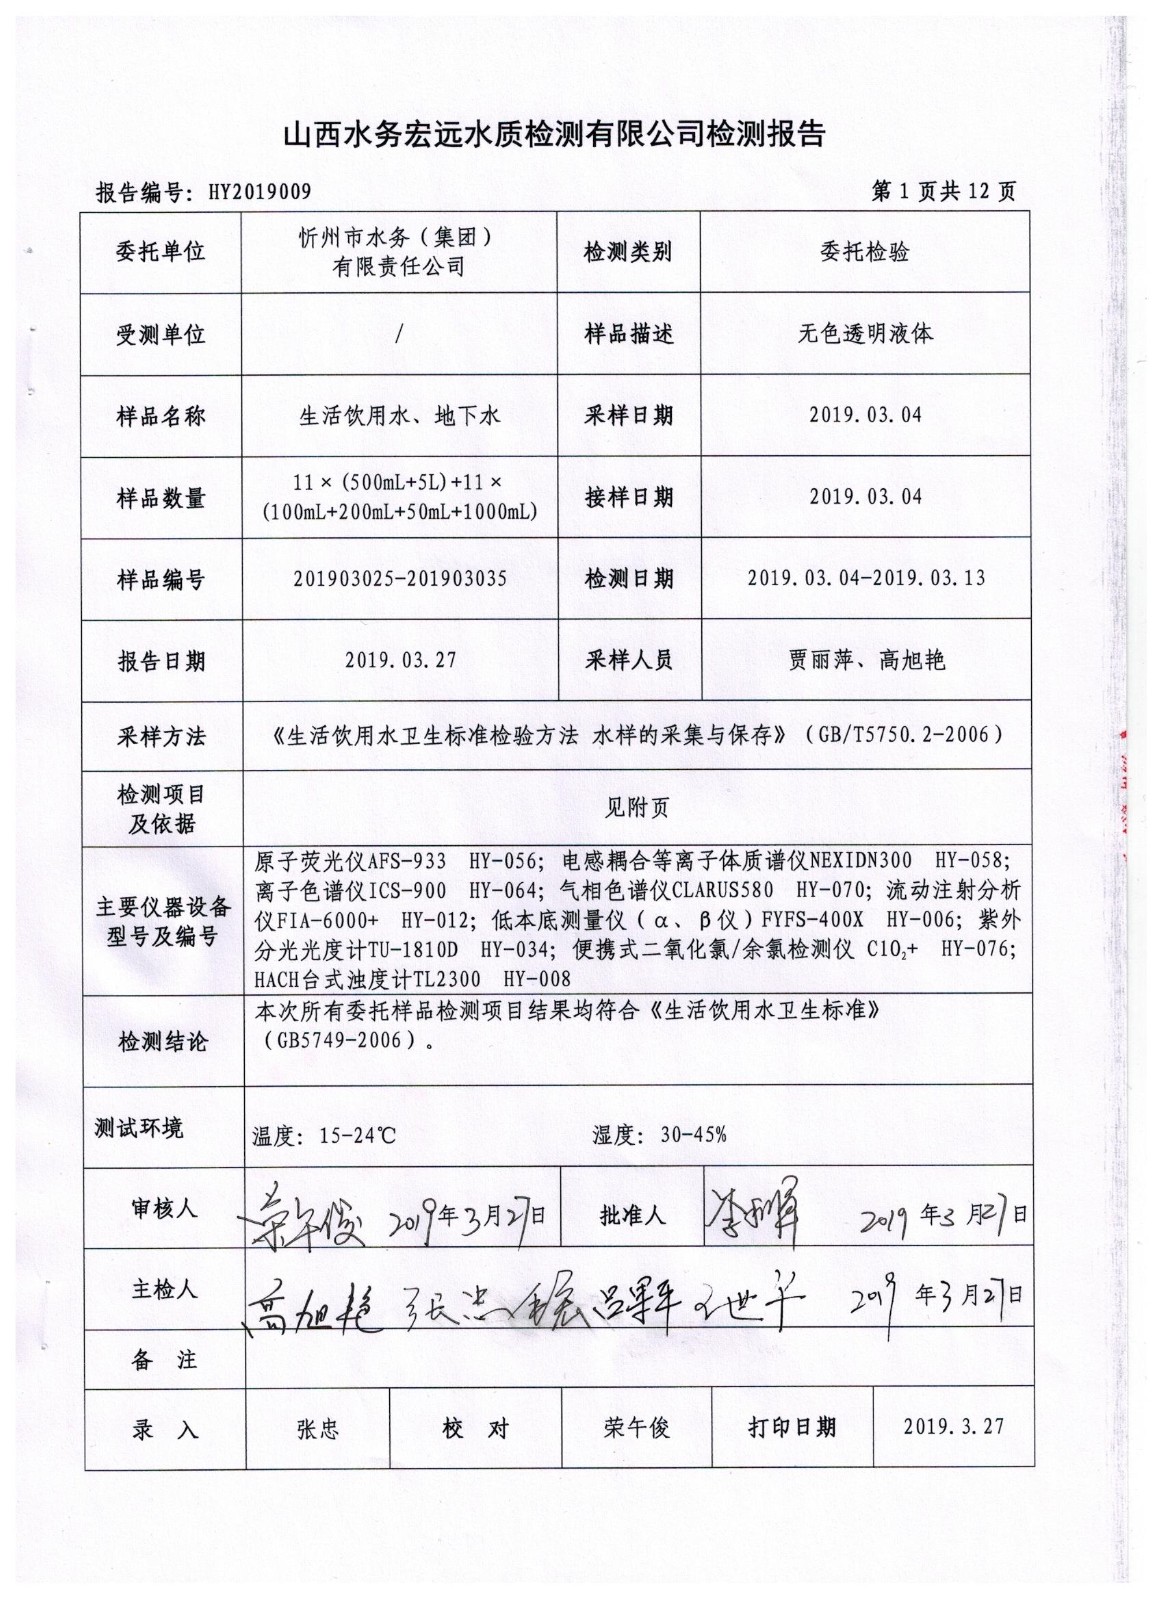 山西水务宏远水质检测有限公司检测报告
报告编号: HY2019009
第 1 页共 12 页
委托单位
忻州市水务（集团）
有限责任公司
检测类别
委托检验
受测单位
/
样品描述
无色透明液体
样品名称
生活饮用水、地下水
采样日期
2019.03.04
样品数量
11×(500mL+5L)+11×
(100mL+200mL+50mL+1000mL)
接样日期
2019.03.04
样品编号
201903025-201903035
检测日期
2019.03.04-2019.03.13
报告日期
2019.03.27
采样人员
贾丽萍、高旭艳
采样方法
《生活饮用水卫生标准检验方法 水样的采集与保存》（GB/T5750.2-2006）
检测项目
及依据
见附页
主要仪器设备
型号及编号
原子荧光仪AFS-933 HY-056; 电感耦合等离子体质谱仪NEXIDN300 HY-058;
离子色谱仪ICS-900 HY-064; 气相色谱仪CLARUS580 HY-070; 流动注射分析
仪FIA-6000+ HY-012; 低本底测量仪（α、β仪）FYFS-400X HY-006; 紫外
分光光度计TU-1810D HY-034; 便携式二氧化氯/余氯检测仪 ClO₂+ HY-076;
HACH台式浊度计TL2300 HY-008
检测结论
本次所有委托样品检测项目结果均符合《生活饮用水卫生标准》
（GB5749-2006）。
测试环境
温度: 15-24℃
湿度: 30-45%
审核人
荣午俊 2019年3月27日
批准人
2019 年3 月27日
主检人
高旭艳 张忠 2019 年3月27日
备 注
录 入
张忠
校 对
荣午俊
打印日期
2019.3.27